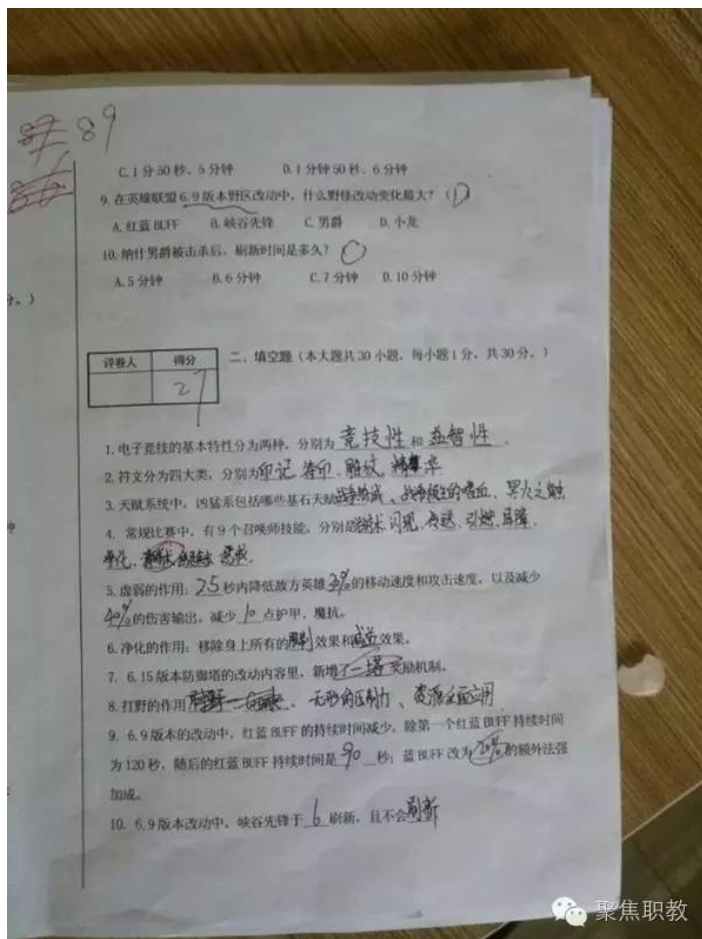 89
C.1分50秒、5分钟 D.1分钟50秒、6分钟
9.在英雄联盟6.9版本野区改动中，什么野怪改动变化最大？（D）
A.红蓝BUFF B.峡谷先锋 C.男爵 D.小龙
10.纳什男爵被击杀后，刷新时间是多久？
A.5分钟 B.6分钟 C.7分钟 D.10分钟
分。）
评卷人 得分
27
二、填空题（本大题共30小题，每小题1分，共30分。）
1.电子竞技的基本特性分为两种，分别为 竞技性 和 益智性 。
2.符文分为四大类，分别为印记 符印、雕纹 精华
3.天赋系统中，凶猛系包括哪些基石天赋战争热诚、战争领主的嗜血、死火之触
4. 常规比赛中，有9个召唤师技能，分别是 闪现、传送、引燃、屏障、
净化、 惩戒。
5.虚弱的作用：2.5秒内降低敌方英雄 的移动速度和攻击速度，以及减少
40%的伤害输出，减少10点护甲、魔抗。
6.净化的作用：移除身上所有的 效果和 效果。
7. 6.15版本防御塔的改动内容里，新增了一塔奖励机制。
8.打野的作用 、无形的压制力、资源全面立用
9. 6.9版本的改动中，红蓝BUFF的持续时间减少，除第一个红蓝BUFF持续时间
为120秒，随后的红蓝BUFF持续时间是90秒；蓝BUFF改为 的额外法强
加成。
10. 6.9版本改动中，峡谷先锋于 6 刷新，且不会刷新
聚焦职教